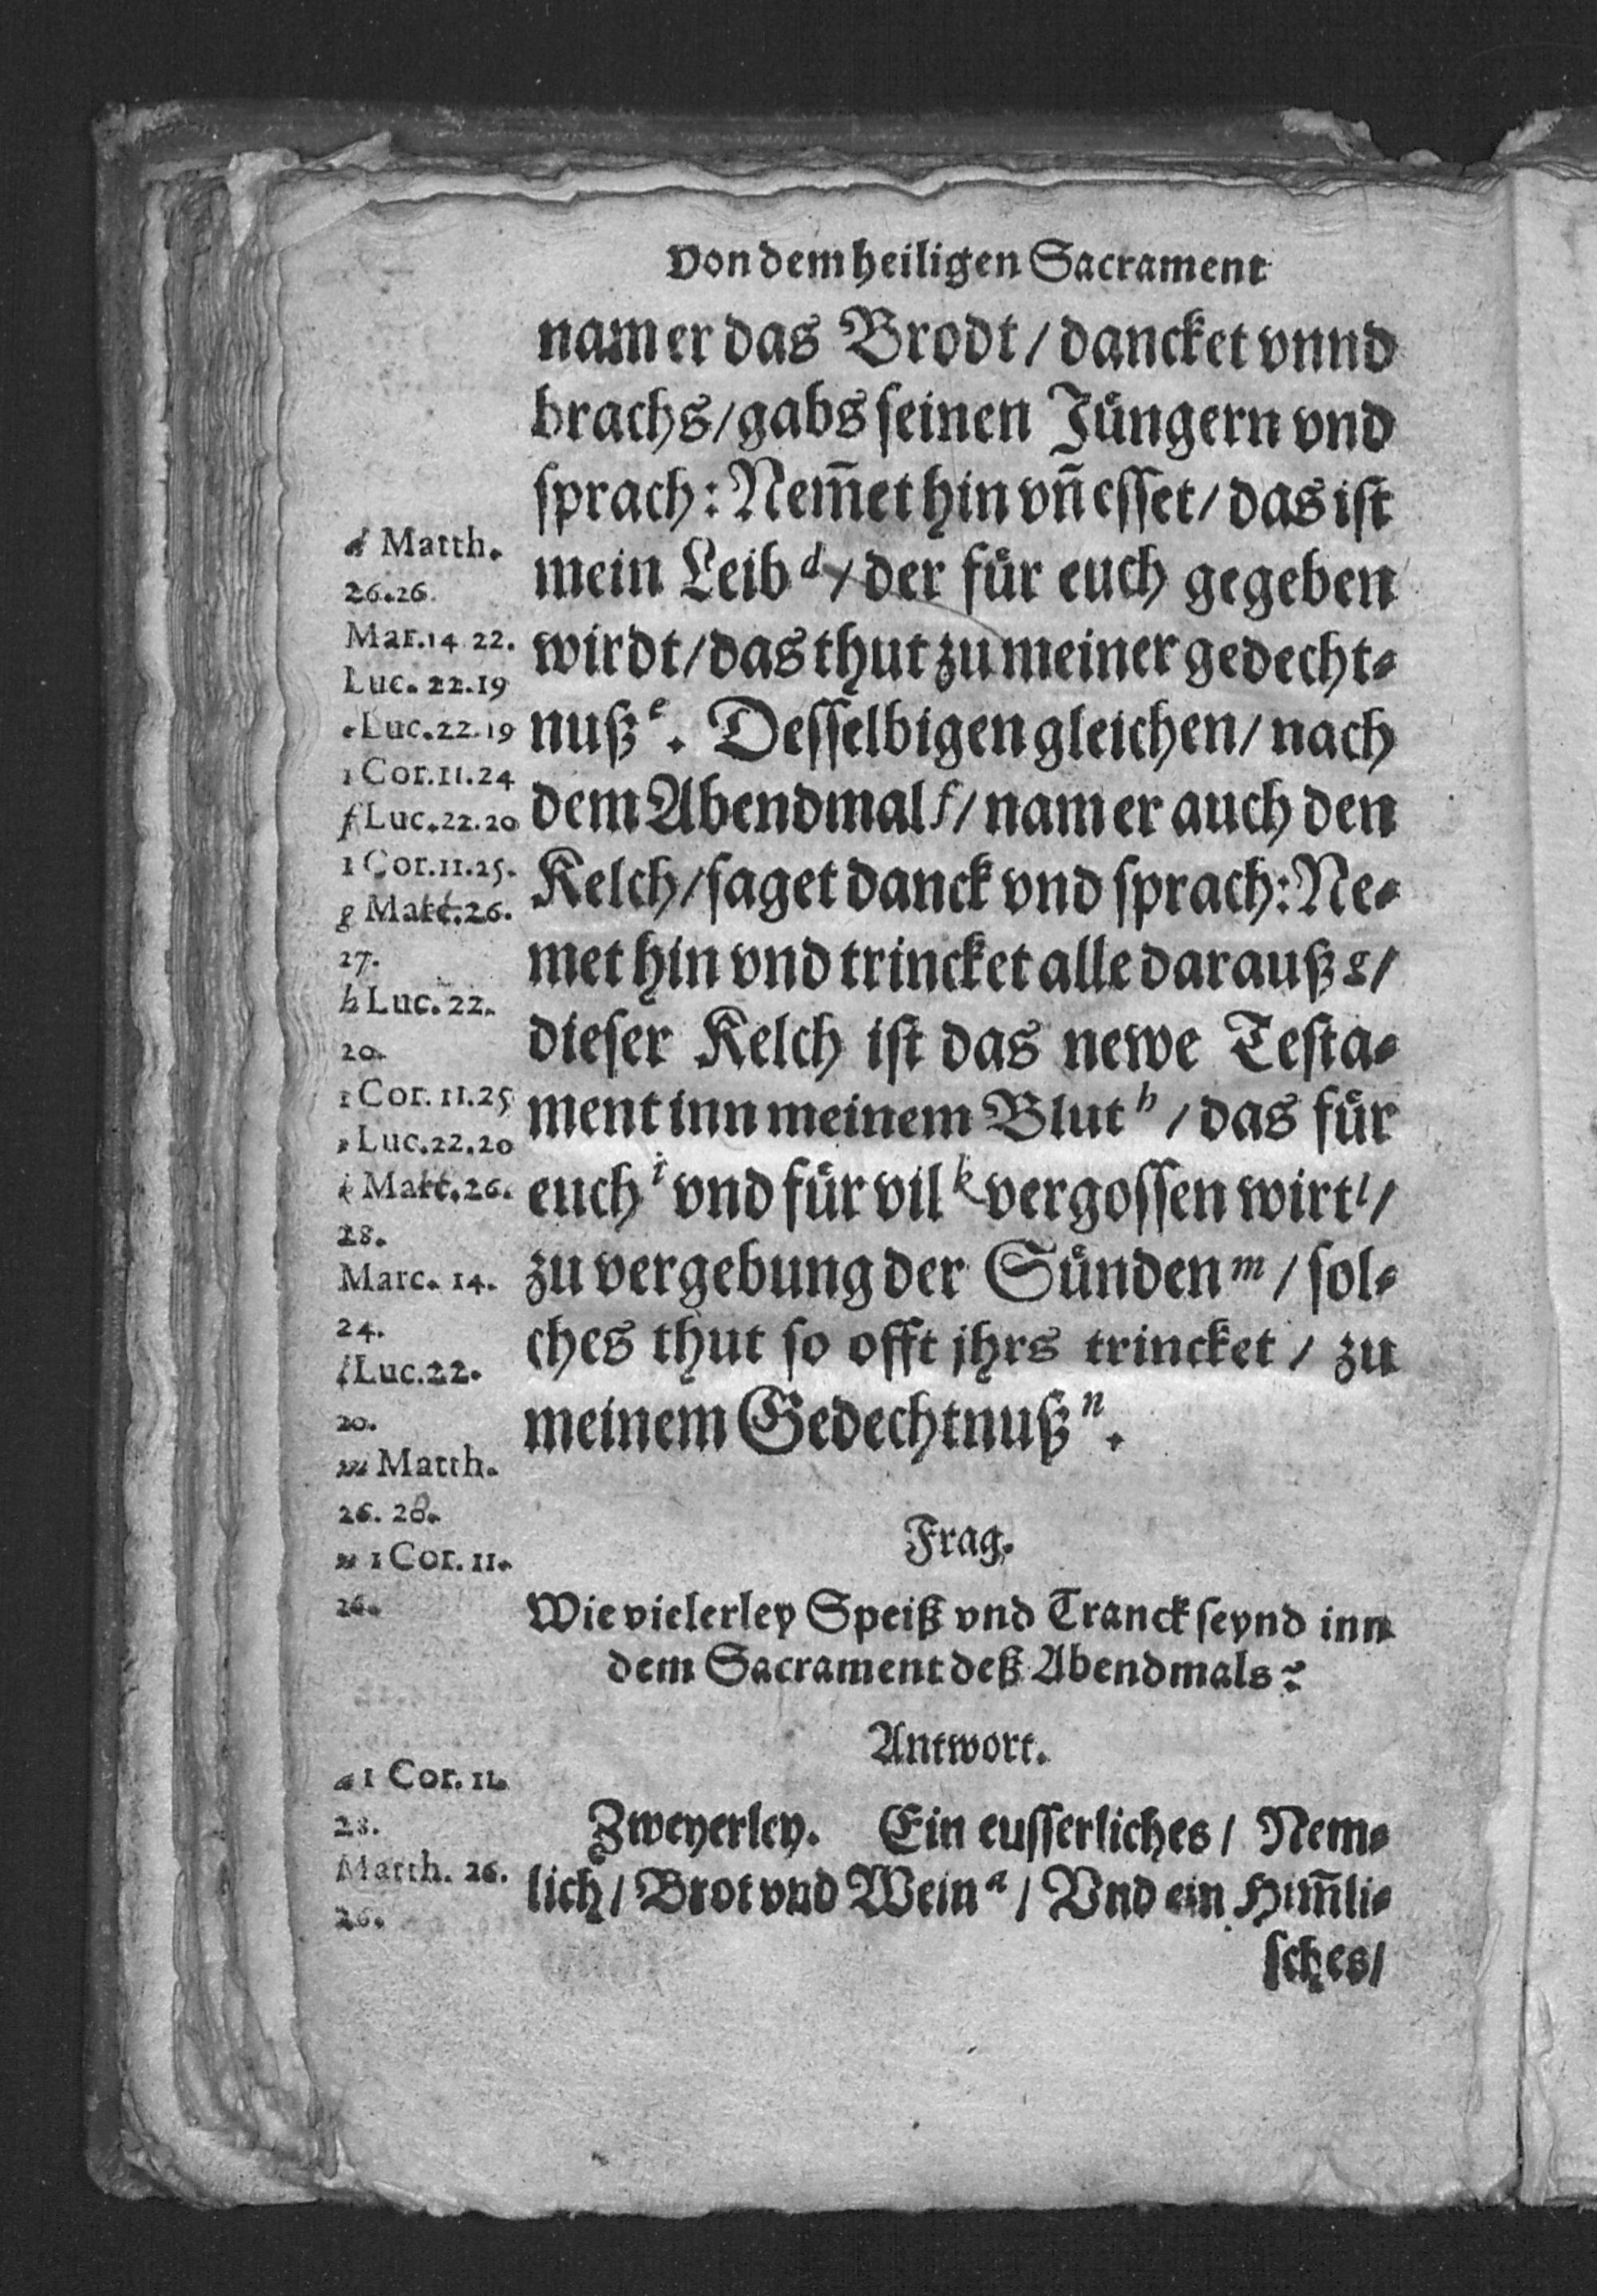 Von dem heiligen Sacrament
nam er das Brodt / dancket vnnd
brachs / gabs seinen Jüngern vnd
sprach: Nem̃et hin vñ esset / das ist
mein Leib d / der für euch gegeben
wirdt / das thut zu meiner gedecht-
nuß e. Desselbigen gleichen / nach
dem Abendmal f / nam er auch den
Kelch / saget danck vnd sprach: Ne-
met hin vnd trincket alle darauß g /
dieser Kelch ist das newe Testa-
ment inn meinem Blut h / das für
euch i vnd für vil k vergossen wirt l /
zu vergebung der Sünden m / sol-
ches thut so offt jhrs trincket / zu
meinem Gedechtnuß n.
d Matth.
26.26.
Mar.14 22.
Luc. 22.19
e Luc.22.19
1 Cor.11.24
f Luc.22.20
1 Cor.11.25.
g Matt.26.
27.
h Luc. 22.
20.
1 Cor. 11.25
i Luc.22.20
k Matt.26.
28.
Marc. 14.
24.
l Luc.22.
20.
m Matth.
26. 28.
n 1 Cor. 11.
26.
Frag.
Wie vielerley Speiß vnd Tranck seynd inn
dem Sacrament deß Abendmals?
Antwort.
Zweyerley. Ein eusserliches / Nem-
lich / Brot vnd Wein a / Vnd ein Him̃li-
sches /
a 1 Cor. 11.
28.
Matth. 26.
26.